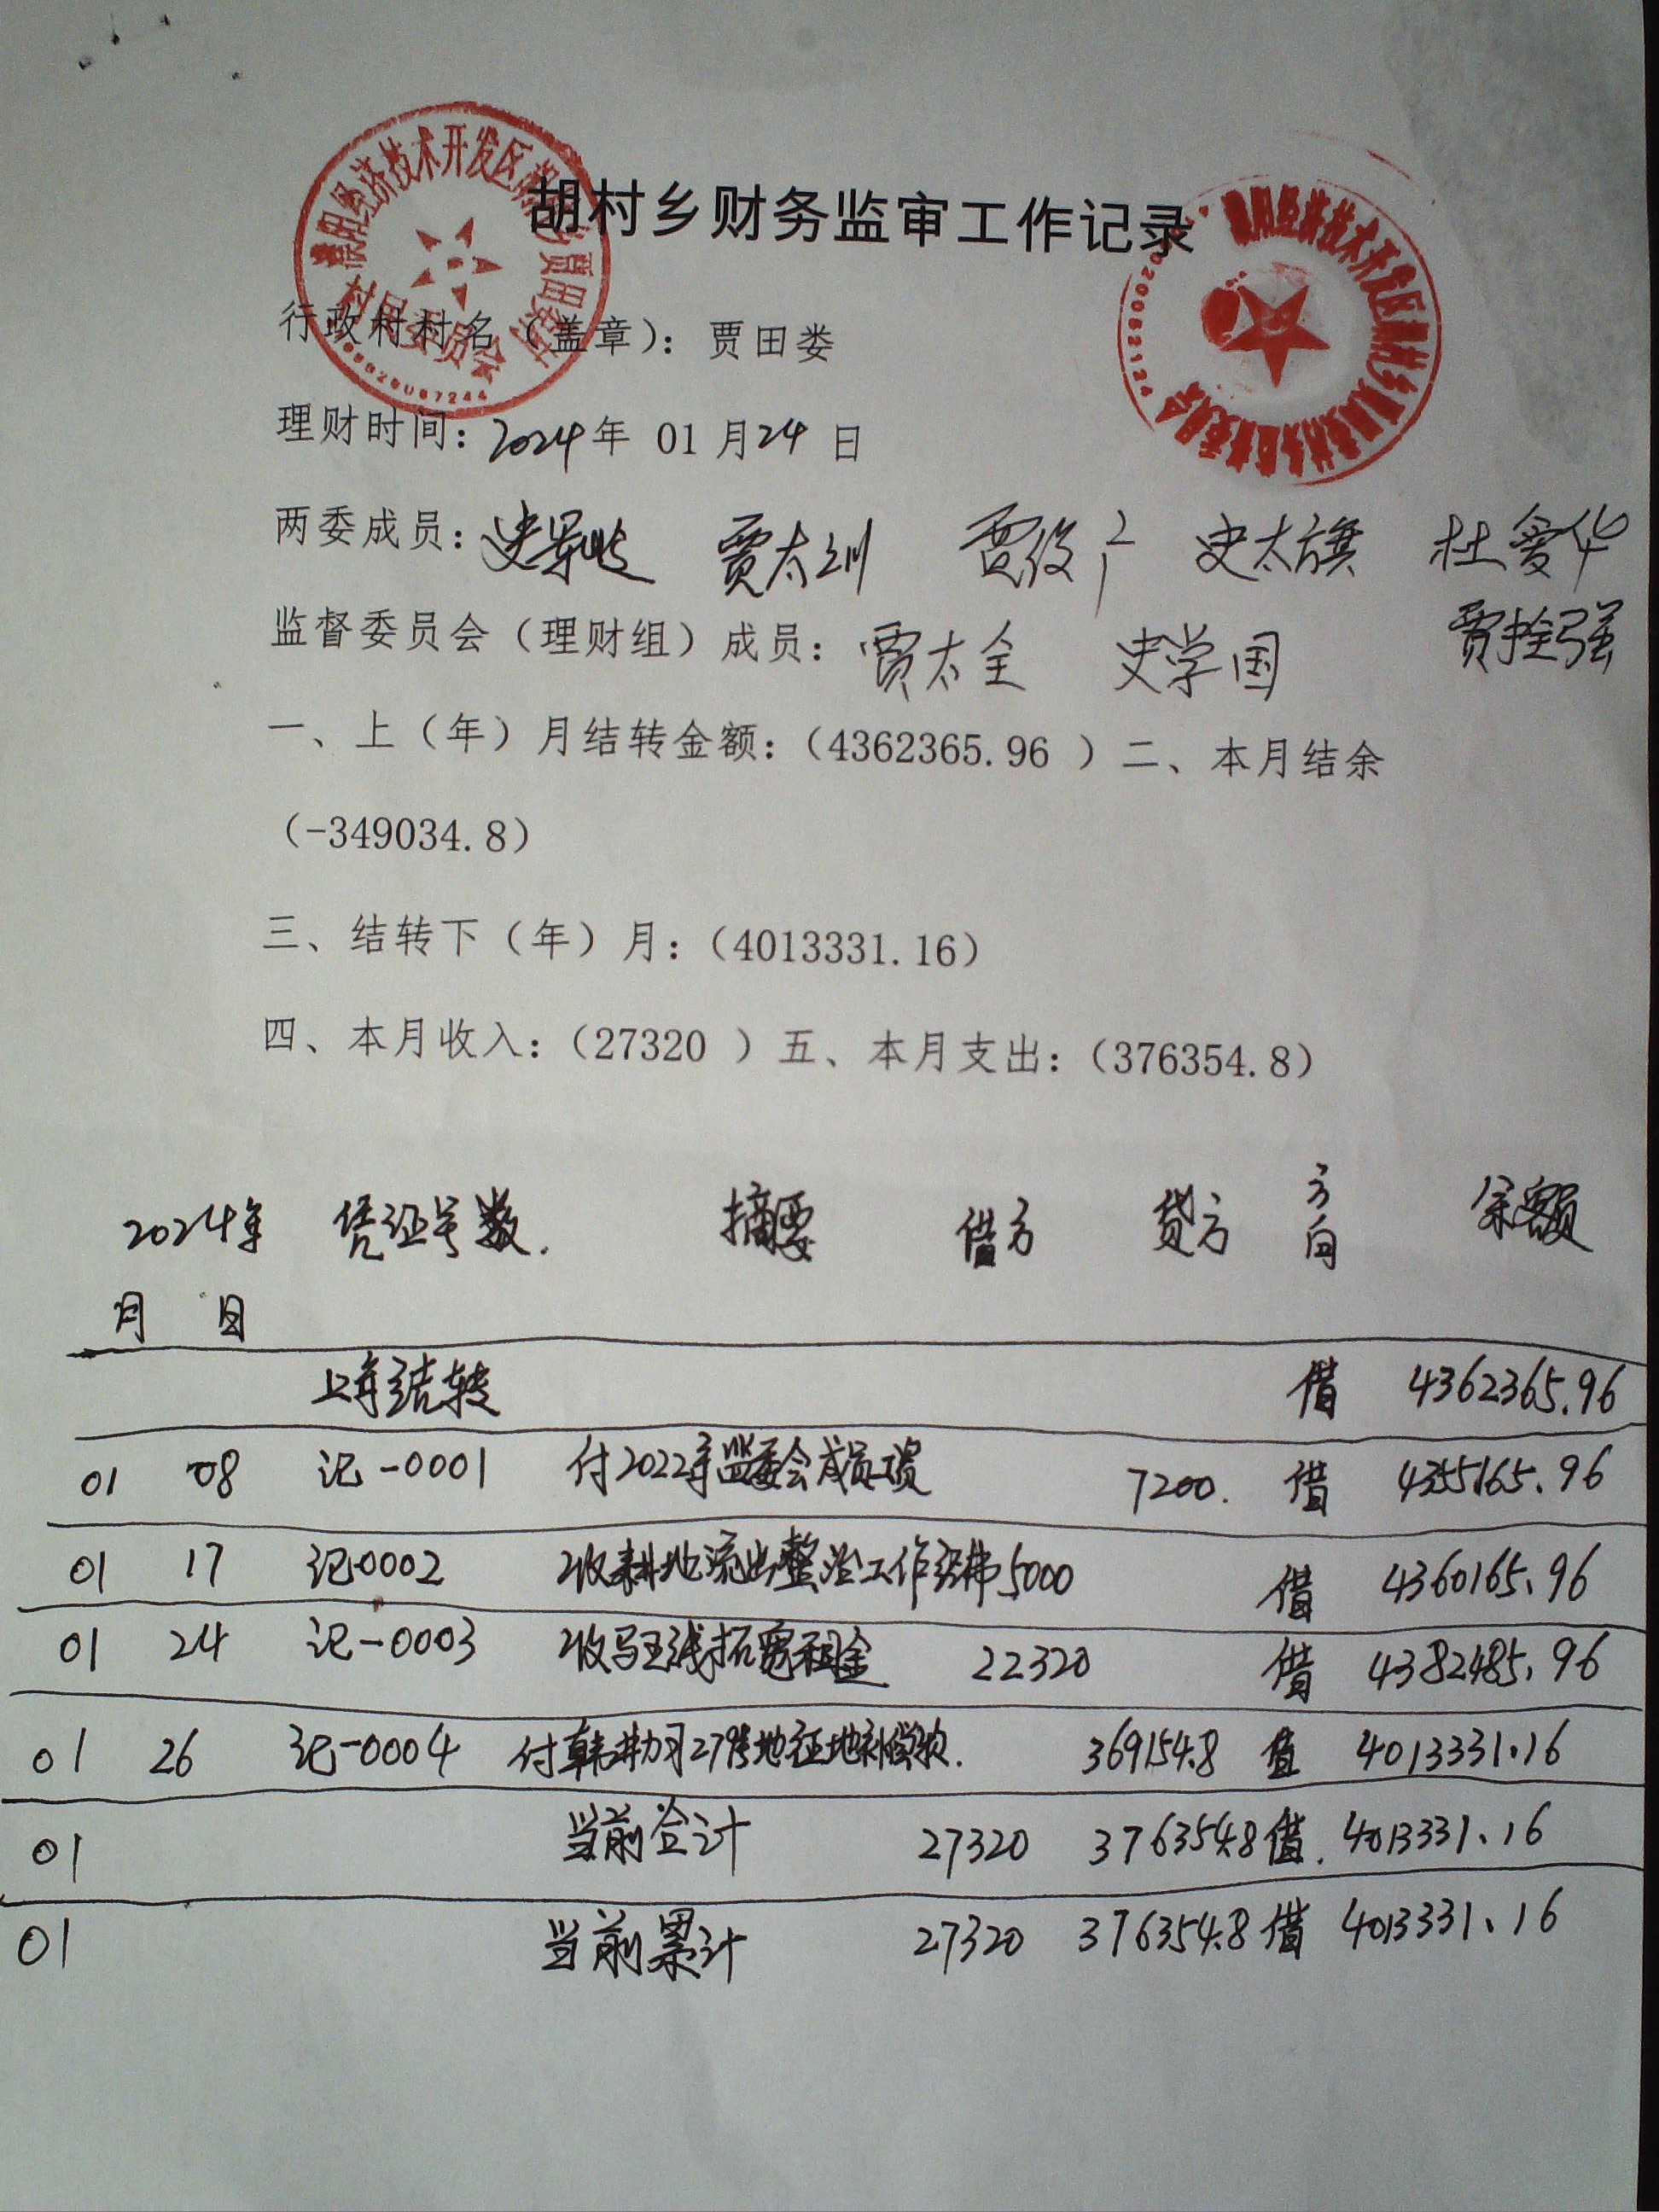 胡村乡财务监审工作记录
行政村村名（盖章）：贾田娄
理财时间：2024年 01月24日
两委成员： 贾太训 史太旗 杜爱华
监督委员会（理财组）成员：贾太全 史学国 贾拴强
一、上（年）月结转金额：（4362365.96 ）二、本月结余
（-349034.8）
三、结转下（年）月：（4013331.16）
四、本月收入：（27320 ）五、本月支出：（376354.8）
2024年 凭证号数. 摘要 借方 贷方 方向 余额
月 日
上年结转 借 4362365.96
01 08 记-0001 付2022年监委会成员工资 7200. 借 4355165.96
01 17 记-0002 收耕地流出整治工作经费 5000 借 4360165.96
01 24 记-0003 收马王线拓宽租金 22320 借 4382485.96
01 26 记-0004 付韩 地征地补偿款. 369154.8 借 4013331.16
01 当前合计 27320 376354.8 借. 4013331.16
01 当前累计 27320 376354.8 借 4013331.16